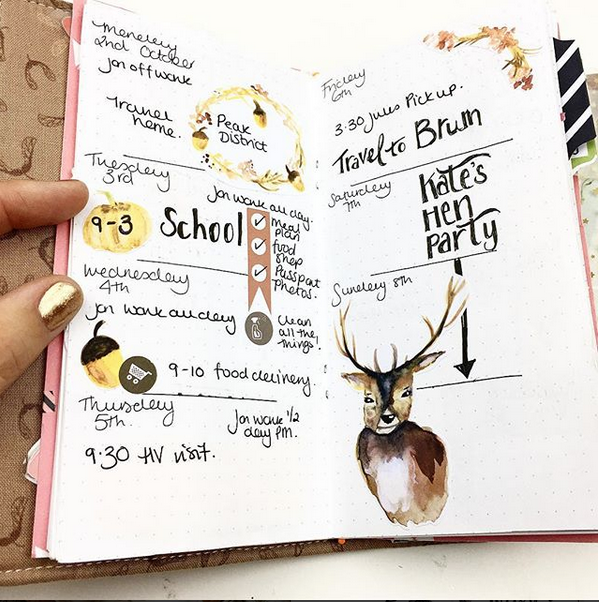 Monday
2nd October
Jon off work
Travel
home.
Peak
District
Tuesday
3rd
Jon work all day.
9-3
School
meal
plan
food
shop
Passport
Photos.
Wednesday
4th
Jon work all day
clean
all the
things!
9-10 food delivery.
Thursday
5th.
Jon work 1/2
day PM.
9.30 HV visit.
Friday
6th
3.30 Jules Pick up.
Travel to Brum
Saturday
7th
Kate's
Hen
Party
Sunday 8th